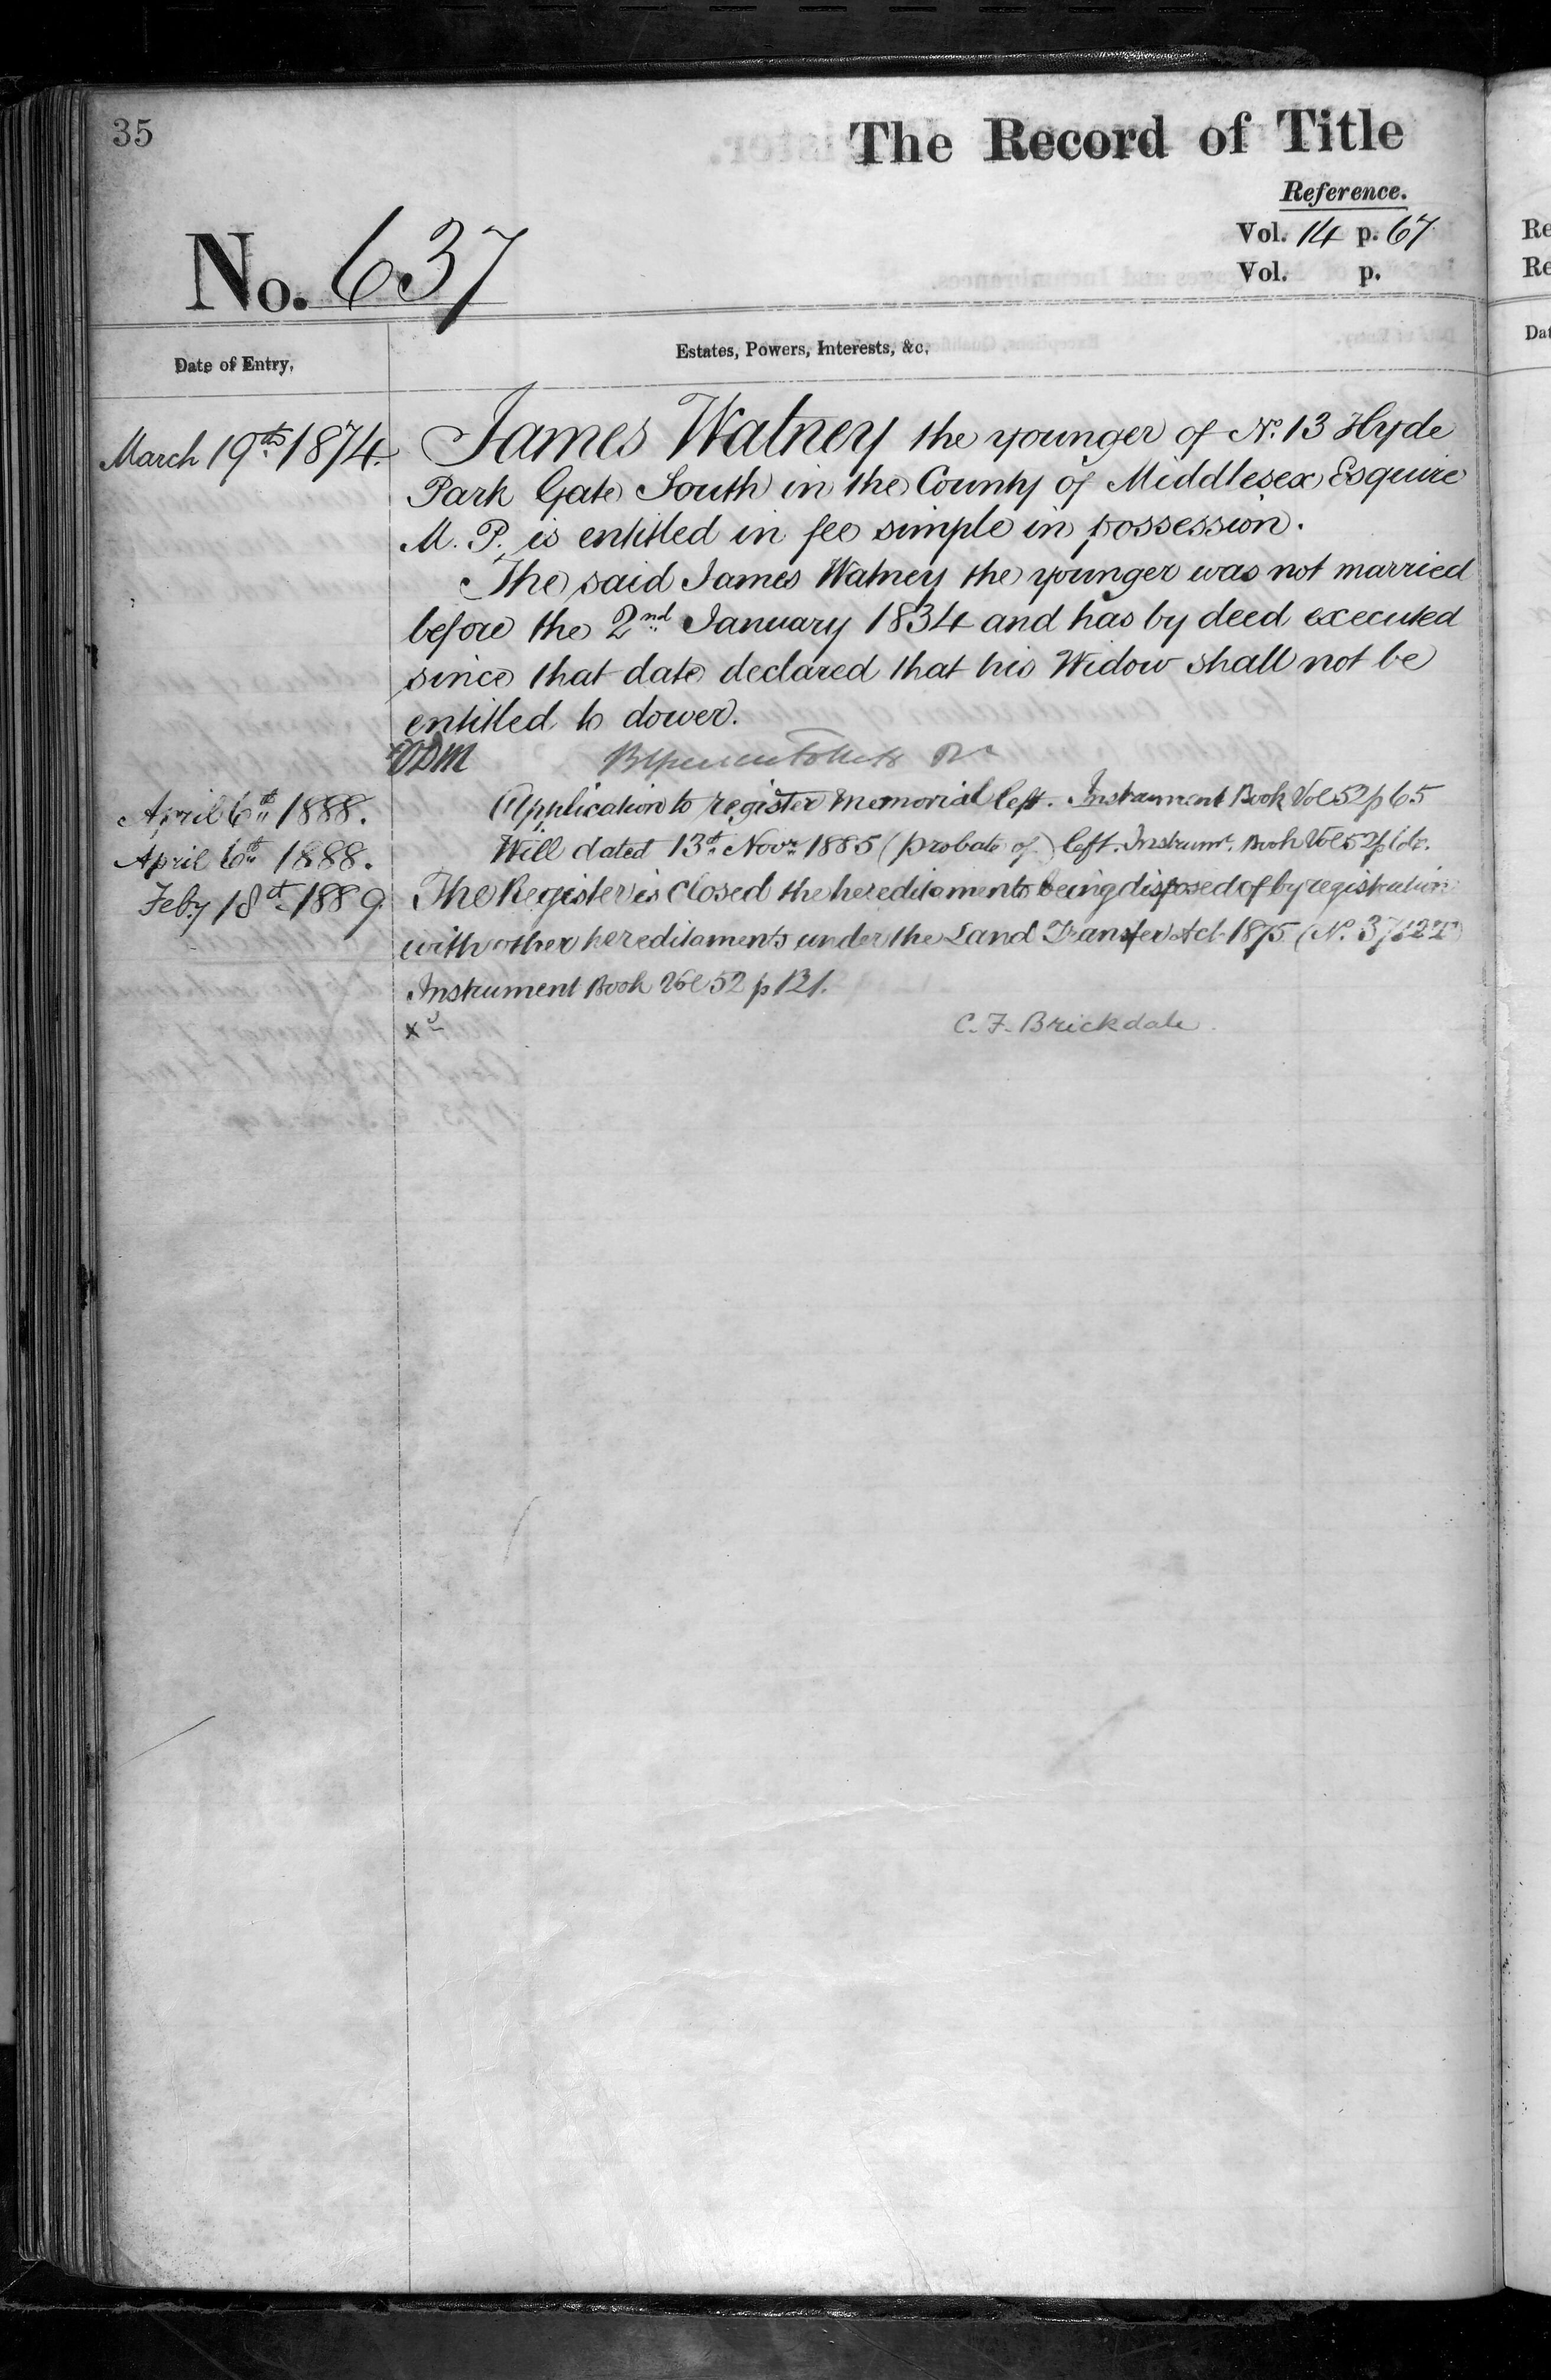 35
The Record of Title
Reference.
Vol. 14 p. 67
Vol. p.
No. 637
Date of Entry.
Estates, Powers, Interests, &c.
March 19th 1874. James Watney the younger of No. 13 Hyde
Park Gate South in the County of Middlesex Esquire
M. P. is entitled in fee simple in possession.
The said James Watney the younger was not married
before the 2nd January 1834 and has by deed executed
since that date declared that his Widow shall not be
entitled to dower.
April 6th 1888. Application to register Memorial left. Instrument Book Vol 52 p 65
April 6th 1888. Will dated 13th Novr 1885 (probate of) left. Instrumt. Book Vol 52 p
Feby 18th 1889. The Register is closed the hereditaments being disposed of by registration
with other hereditaments under the Land Transfer Act 1875 (No.
Instrument Book Vol 52 p 121.
C. F. Brickdale
Re
Re
Dat